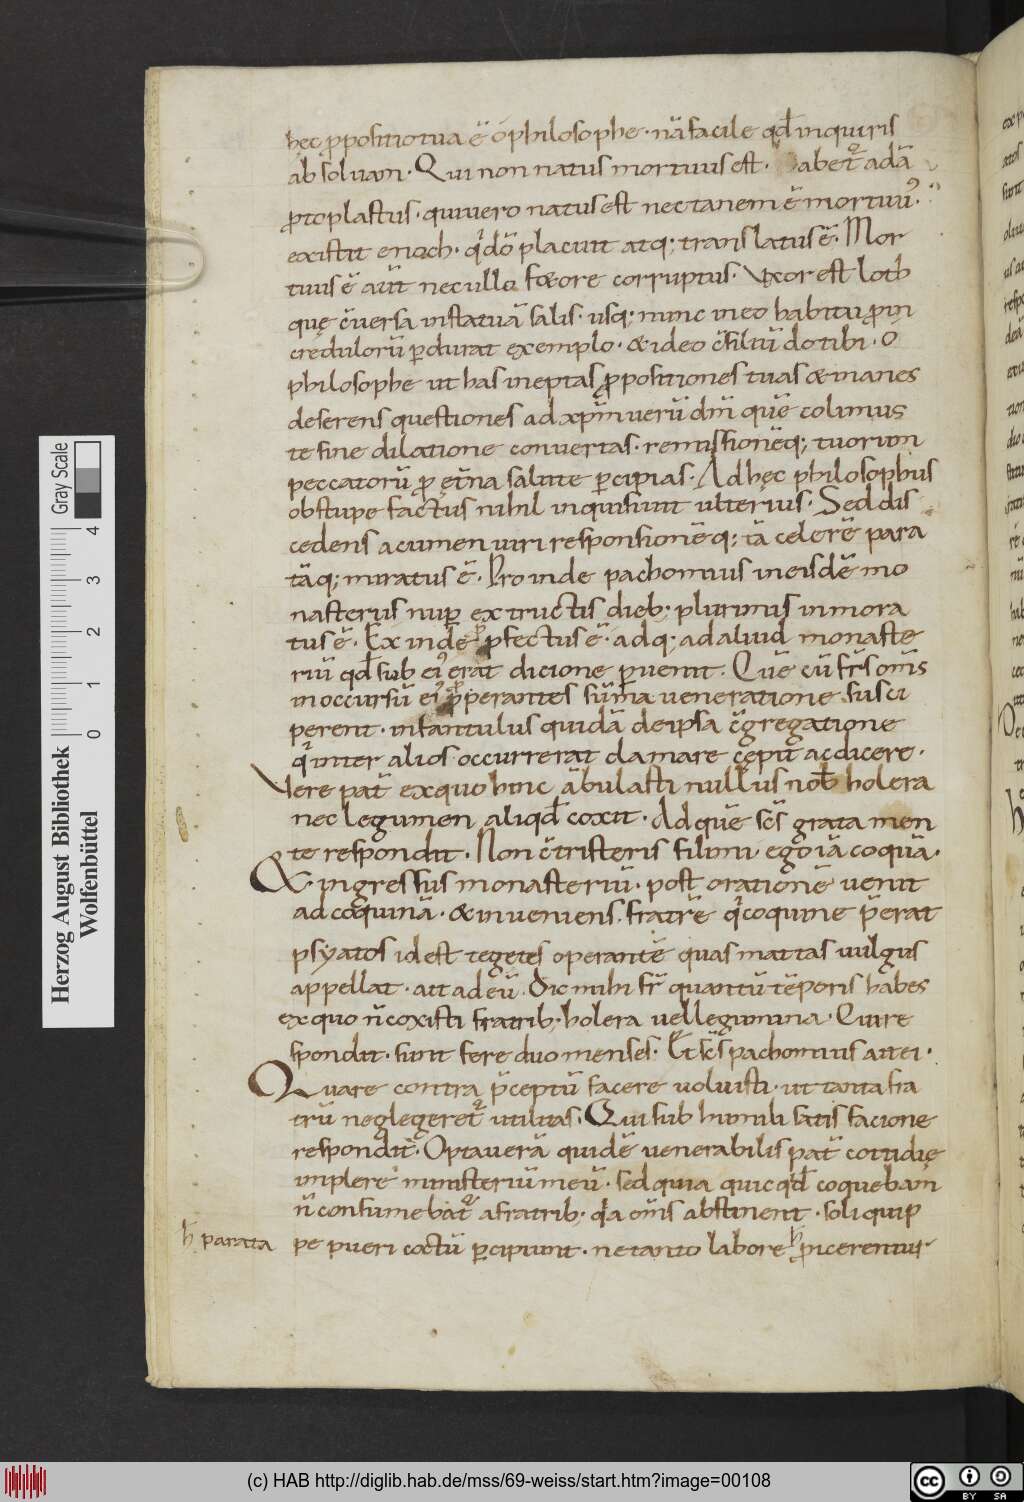 hęc ꝓpositio tua ē ó philosophe · nā facile qđ inquiris
absoluam · Qui non natus mortuus est · abet᷑ adā
ꝓtoplastus · qui uero natus est nec tamen ē mortuus ·
existit enoch · q̇ dō placuit atq; translatus ē · Mor
tuus ē aūt nec ullo fœtore corruptus · Vxor est loth
quę c̄uersa in statuā salis · usq; nunc in eo habitu ꝓ in
credulorū ꝑdurat exemplo · & ideo c̄siliū do tibi · O
philosophe ut has ineptas ꝓpositiones tuas & inanes
deserens questiones ad xp̄m uerū dn̄m quē colimus
te sine dilatione conuertas · remissionēq; tuorum
peccatorū ꝓ ęt̄na salute ꝑcipias · Ad hęc philosophus
obstupefactus nihil inquisiuit ulterius · Sed dis
cedens acumen uiri responsionēq; tā celerē para
tāq; miratus ē · Proinde pachomius in eisdē mo
nasteriis nuꝑ extructis dieb; plurimis inmora
tus ē · Exinde ꝓfectus ē · adq; ad aliud monaste
riū qđ sub eiꝰ erat dicione ꝑuenit · Quē cū fr̄s om̄s
in occursū eiꝰ ꝓperantes sūma ueneratione susci
perent · infantulus quidā de ipsa c̄gregatione
q̇ inter alios occurrerat clamare cępit ac dicere ·
Vere pat̄ ex quo hinc ābulasti nullus nob̄ holera
nec legumen aliqđ coxit · Ad quē sc̄s grata men
te respondit · Non c̄tristeris fili mi ego iā coquā ·
& ingressus monasteriū · post orationē uenit
ad coquinā · & inueniens fratrē q̇ coquinę p̄erat
psyatos id est tegetes operantē quas mattas uulgus
appellat · ait ad eū · Dic mihi fr̄ quantū tēporis habes
ex quo n̄ coxisti fratrib; holera uel legumina · Qui re
spondit · sunt fere duo menses · Et sc̄s pachomius ait ei ·
Quare contra p̄ceptū facere uoluisti · ut tanta fra
trū neglegeret᷑ utilitas · Qui sub humili satisfacione
respondit · Optauerā quidē uenerabilis pat̄ cottidię
implere ministeriū meū · sed quia quicqđ coquebam
n̄ consumebat᷑ a fratrib; q̇a om̄s abstinent · soli quip
h̄ parata pe pueri coctū ꝑcipiunt · ne tanto labore h̄ ꝓicerentur
Herzog August Bibliothek
Wolfenbüttel
Gray Scale
0 1 2 3 4
(c) HAB http://diglib.hab.de/mss/69-weiss/start.htm?image=00108
cc BY SA